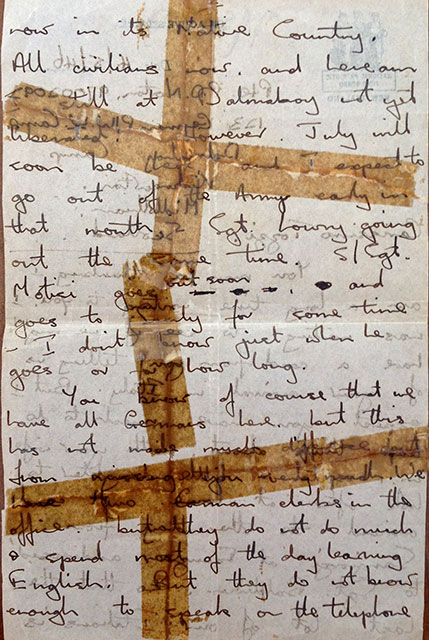 now in its Native Country.
All civilians now. and here am
I still at Dalmahoy not yet
liberated. However. July will
soon be here and I expect to
go out of the Army early in
that month. Sgt. Lowry going
out the same time. S/Sgt.
Motici goes out soon and
goes to for some time
I don't know just when he
goes or for how long.
You know of course that we
have all Germans here. but this
has not made much difference
from very much. We
have three German clerks in the
office. but they do not do much
& spend most of the day learning
English. But they do not know
enough to speak on the telephone